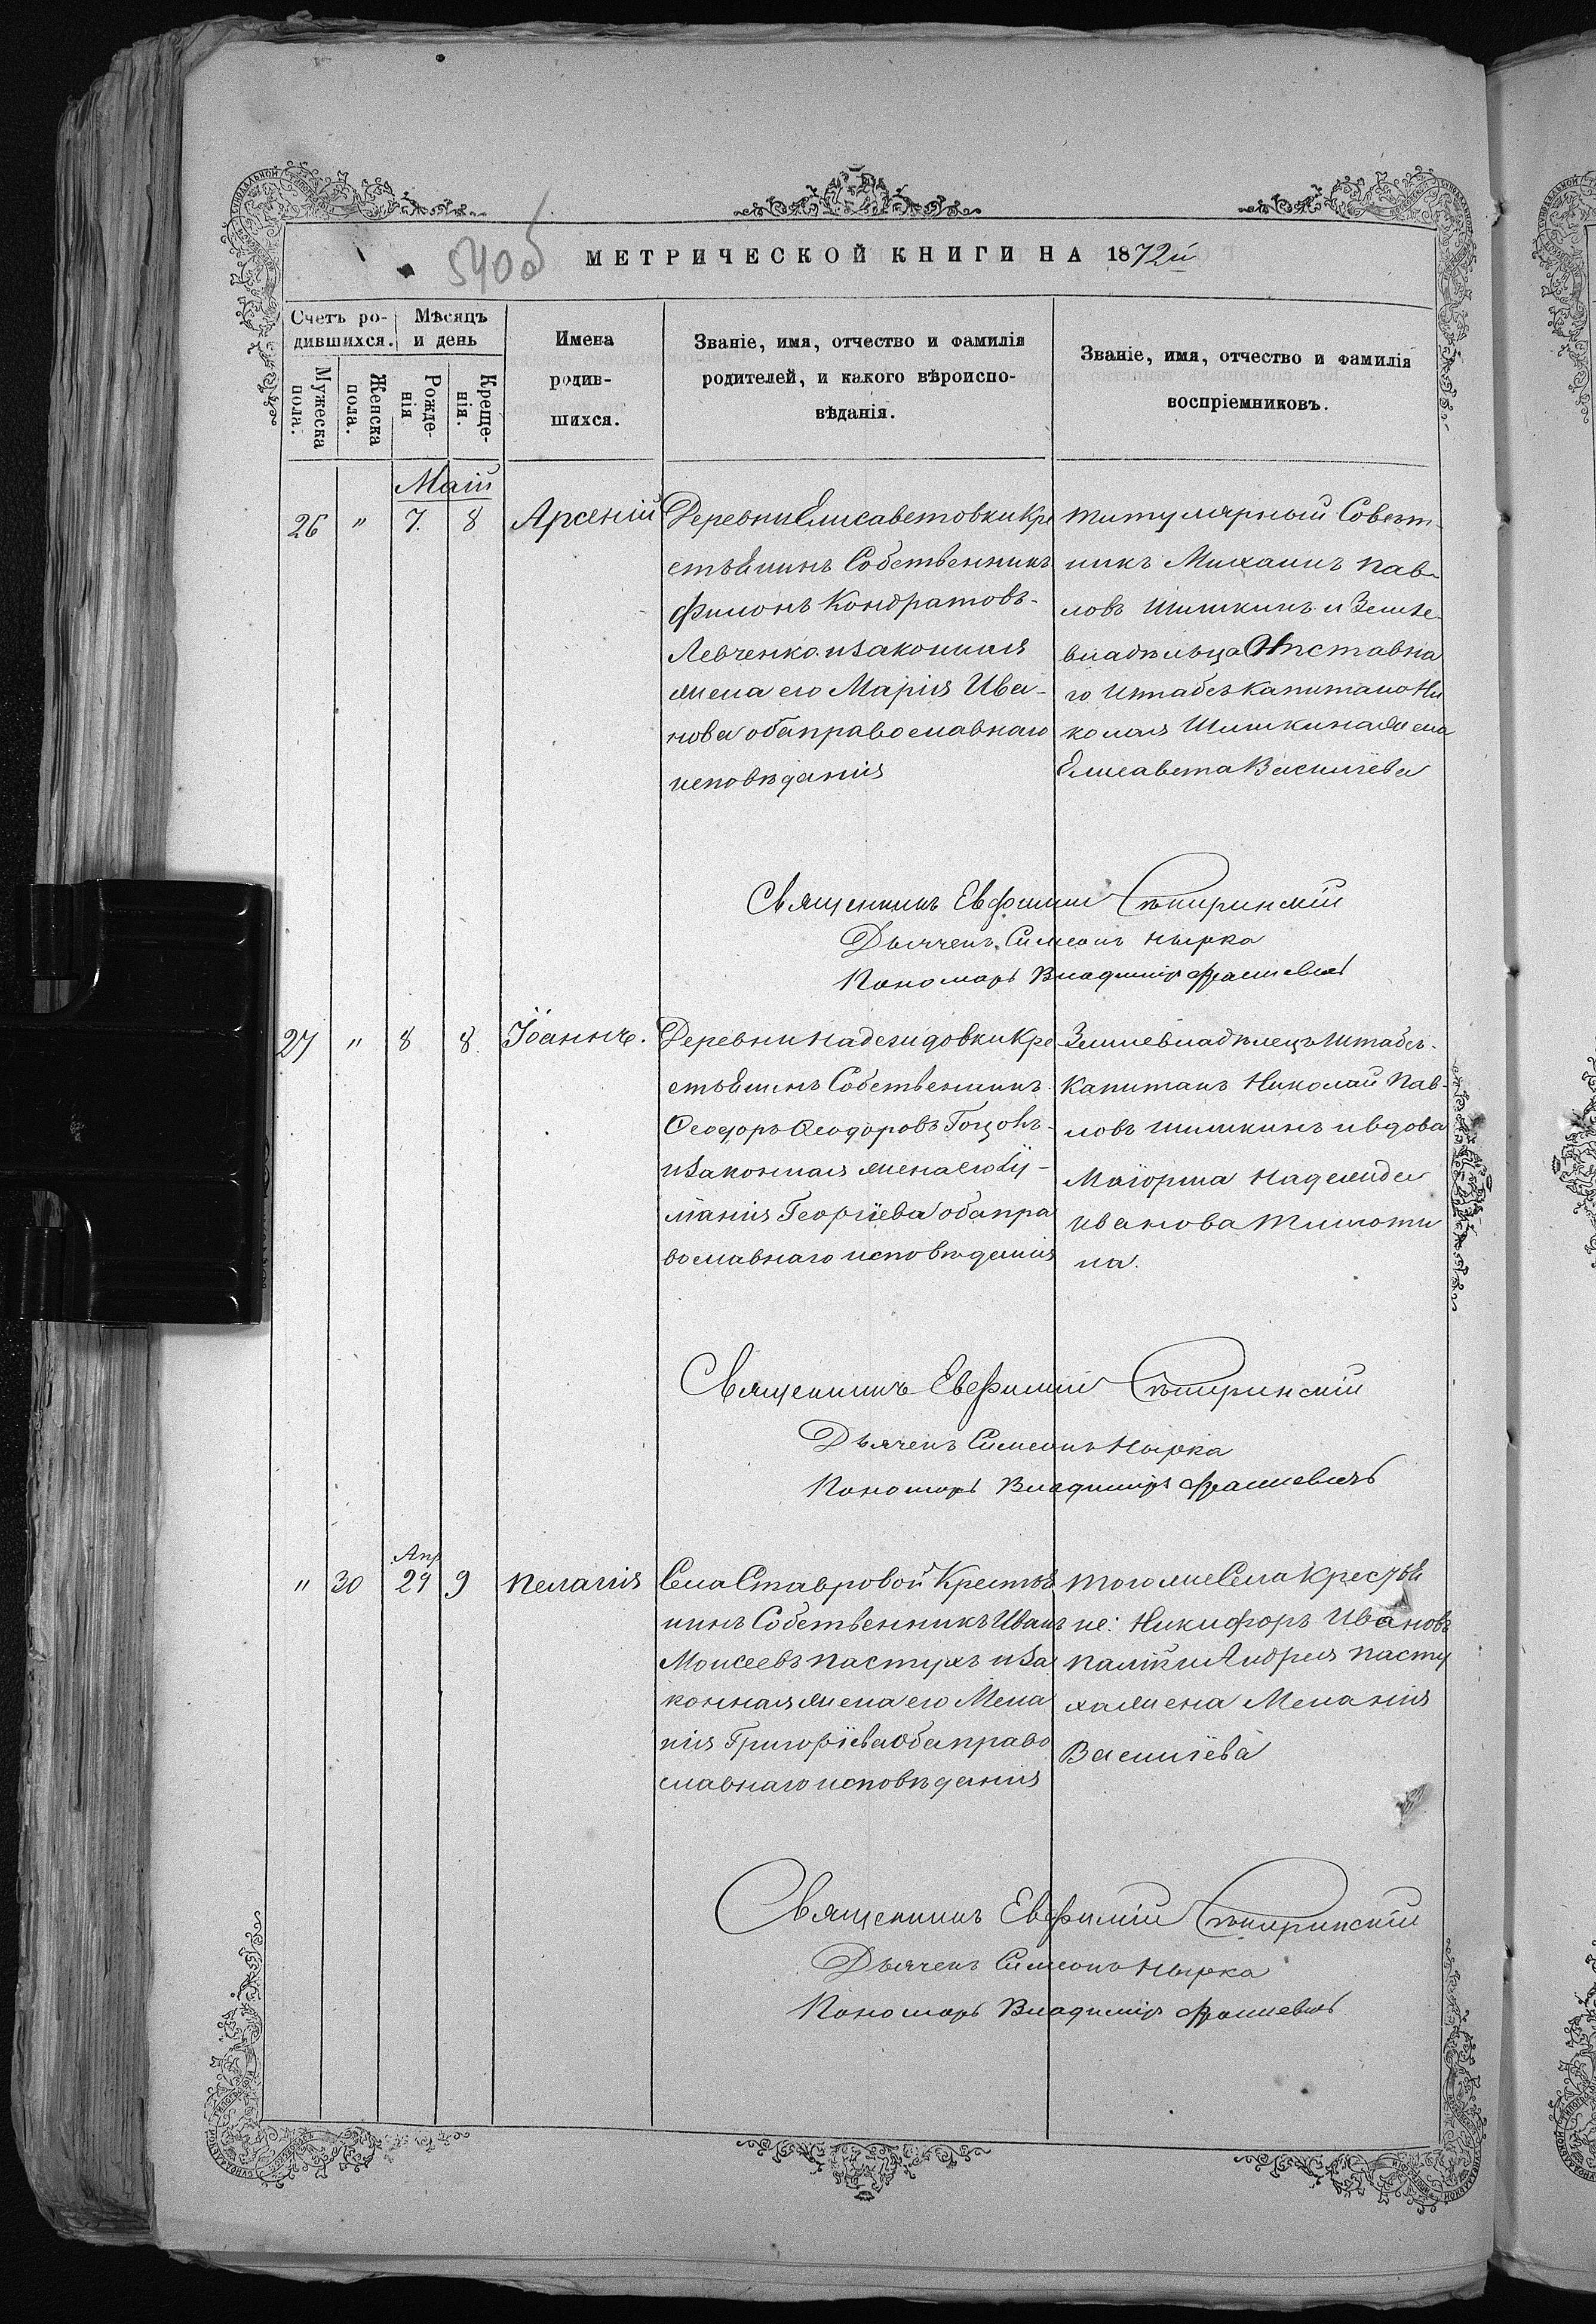 540об
МЕТРИЧЕСКОЙ КНИГИ НА 1872й
Счетъ ро-
дившихся.
Мѣсяцъ
и день
Мужеска
пола.
Женска
пола.
Рожде-
нія
Креще-
нія.
Имена
родив-
шихся.
Званіе, имя, отчество и фамилія
родителей, и какого вѣроиспо-
вѣданія.
Званіе, имя, отчество и фамилія
воспріемниковъ.
Маій
26 " 7. 8 Арсеній
Деревни Елисаветовки Кре
стьянинъ Собственникъ
Филонъ Кондратовъ-
Левченко и законная
жена его Марія Ива-
нова оба православнаго
исповѣданія
Титулярный Совѣт-
никъ Михаилъ Пав-
ловъ Шишкинъ и Земле-
владѣльца Отставна
го Штабсъ Капитана Ни
колая Шишкина жена
Елисавета Василіева
Священникъ Евфимій
Дьячекъ Симеонъ Нырка
Пономарь Владиміръ
27 " 8 8. Іоаннъ.
Деревни Надеждовки Кре
стьянинъ Собственникъ
Ѳеодоръ Ѳеодоровъ
и законная жена его Іу-
ліанія Георгіева оба пра
вославнаго исповѣданія
Землевладѣлецъ Штабсъ-
Капитанъ Николай Пав-
ловъ Шишкинъ и вдова
Маіорша Надежда
Иванова Тимоти
на.
Священникъ Евфимій
Дьячекъ Симеонъ Нырка
Пономарь Владиміръ
Апр
" 30 29 9 Пелагія
Села Ставровой Крестья
нинъ Собственникъ Иванъ
Моисеевъ Пастухъ и За
конная жена его Мела
нія Григоріева оба право
славнаго исповѣданія
Того же Села Крестья
не: Никифоръ Ивановъ
Палій и Андрея Пасту
ха жена Меланія
Василіева
Священникъ Евфимій
Дьячекъ Симеонъ Нырка
Пономарь Владиміръ